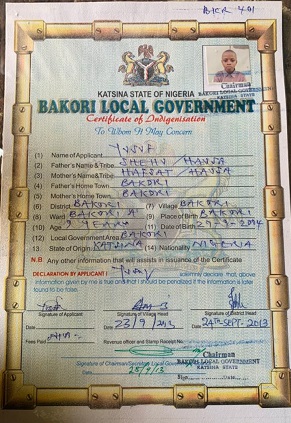 BKR 401
KATSINA STATE OF NIGERIA
BAKORI LOCAL GOVERNMENT
Certificate of Indigenisation
To Whom It May Concern
Chairman
BAKORI LOCAL GOVERNMENT
(1) Name of Applicant Yusuf
(2) Father's Name & Tribe SHEHU / HAUSA
(3) Mother's Name & Tribe HAFSAT / HAUSA
(4) Father's Home Town BAKORI
(5) Mother's Home Town BAKORI
(6) District BAKORI (7) Village BAKORI
(8) Ward BAKORI A (9) Place of Birth BAKORI
(10) Age 9 YEARS (11) Date of Birth
(12) Local Government Area BAKORI
(13) State of Origin KATSINA (14) Nationality NIGERIA
N.B. Any other information that will assists in issuance of the Certificate
DECLARATION BY APPLICANT I Yusuf solemnly declare that, above
information given by me is true and that I should be penalized if the information is later
found to be false.
Signature of Applicant Signature of Village Head Signature of District Head
Date Date 23/9/2013 Date 24TH SEPT. 2013
Fees Paid Revenue officer and Stamp Receipt No.
Signature of Chairman/Secretary Local Government
Date 25/9/13
Chairman
BAKORI LOCAL GOVERNMENT
KATSINA STATE
Sign Date